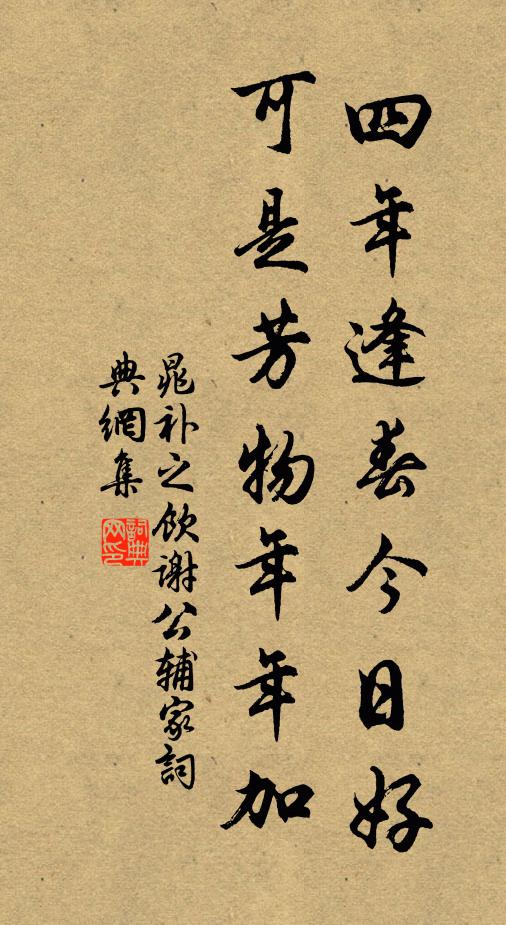 四年逢春今日好
可是芳物年年加
晁补之饮謝公辅家詞
典網集
詞典网印